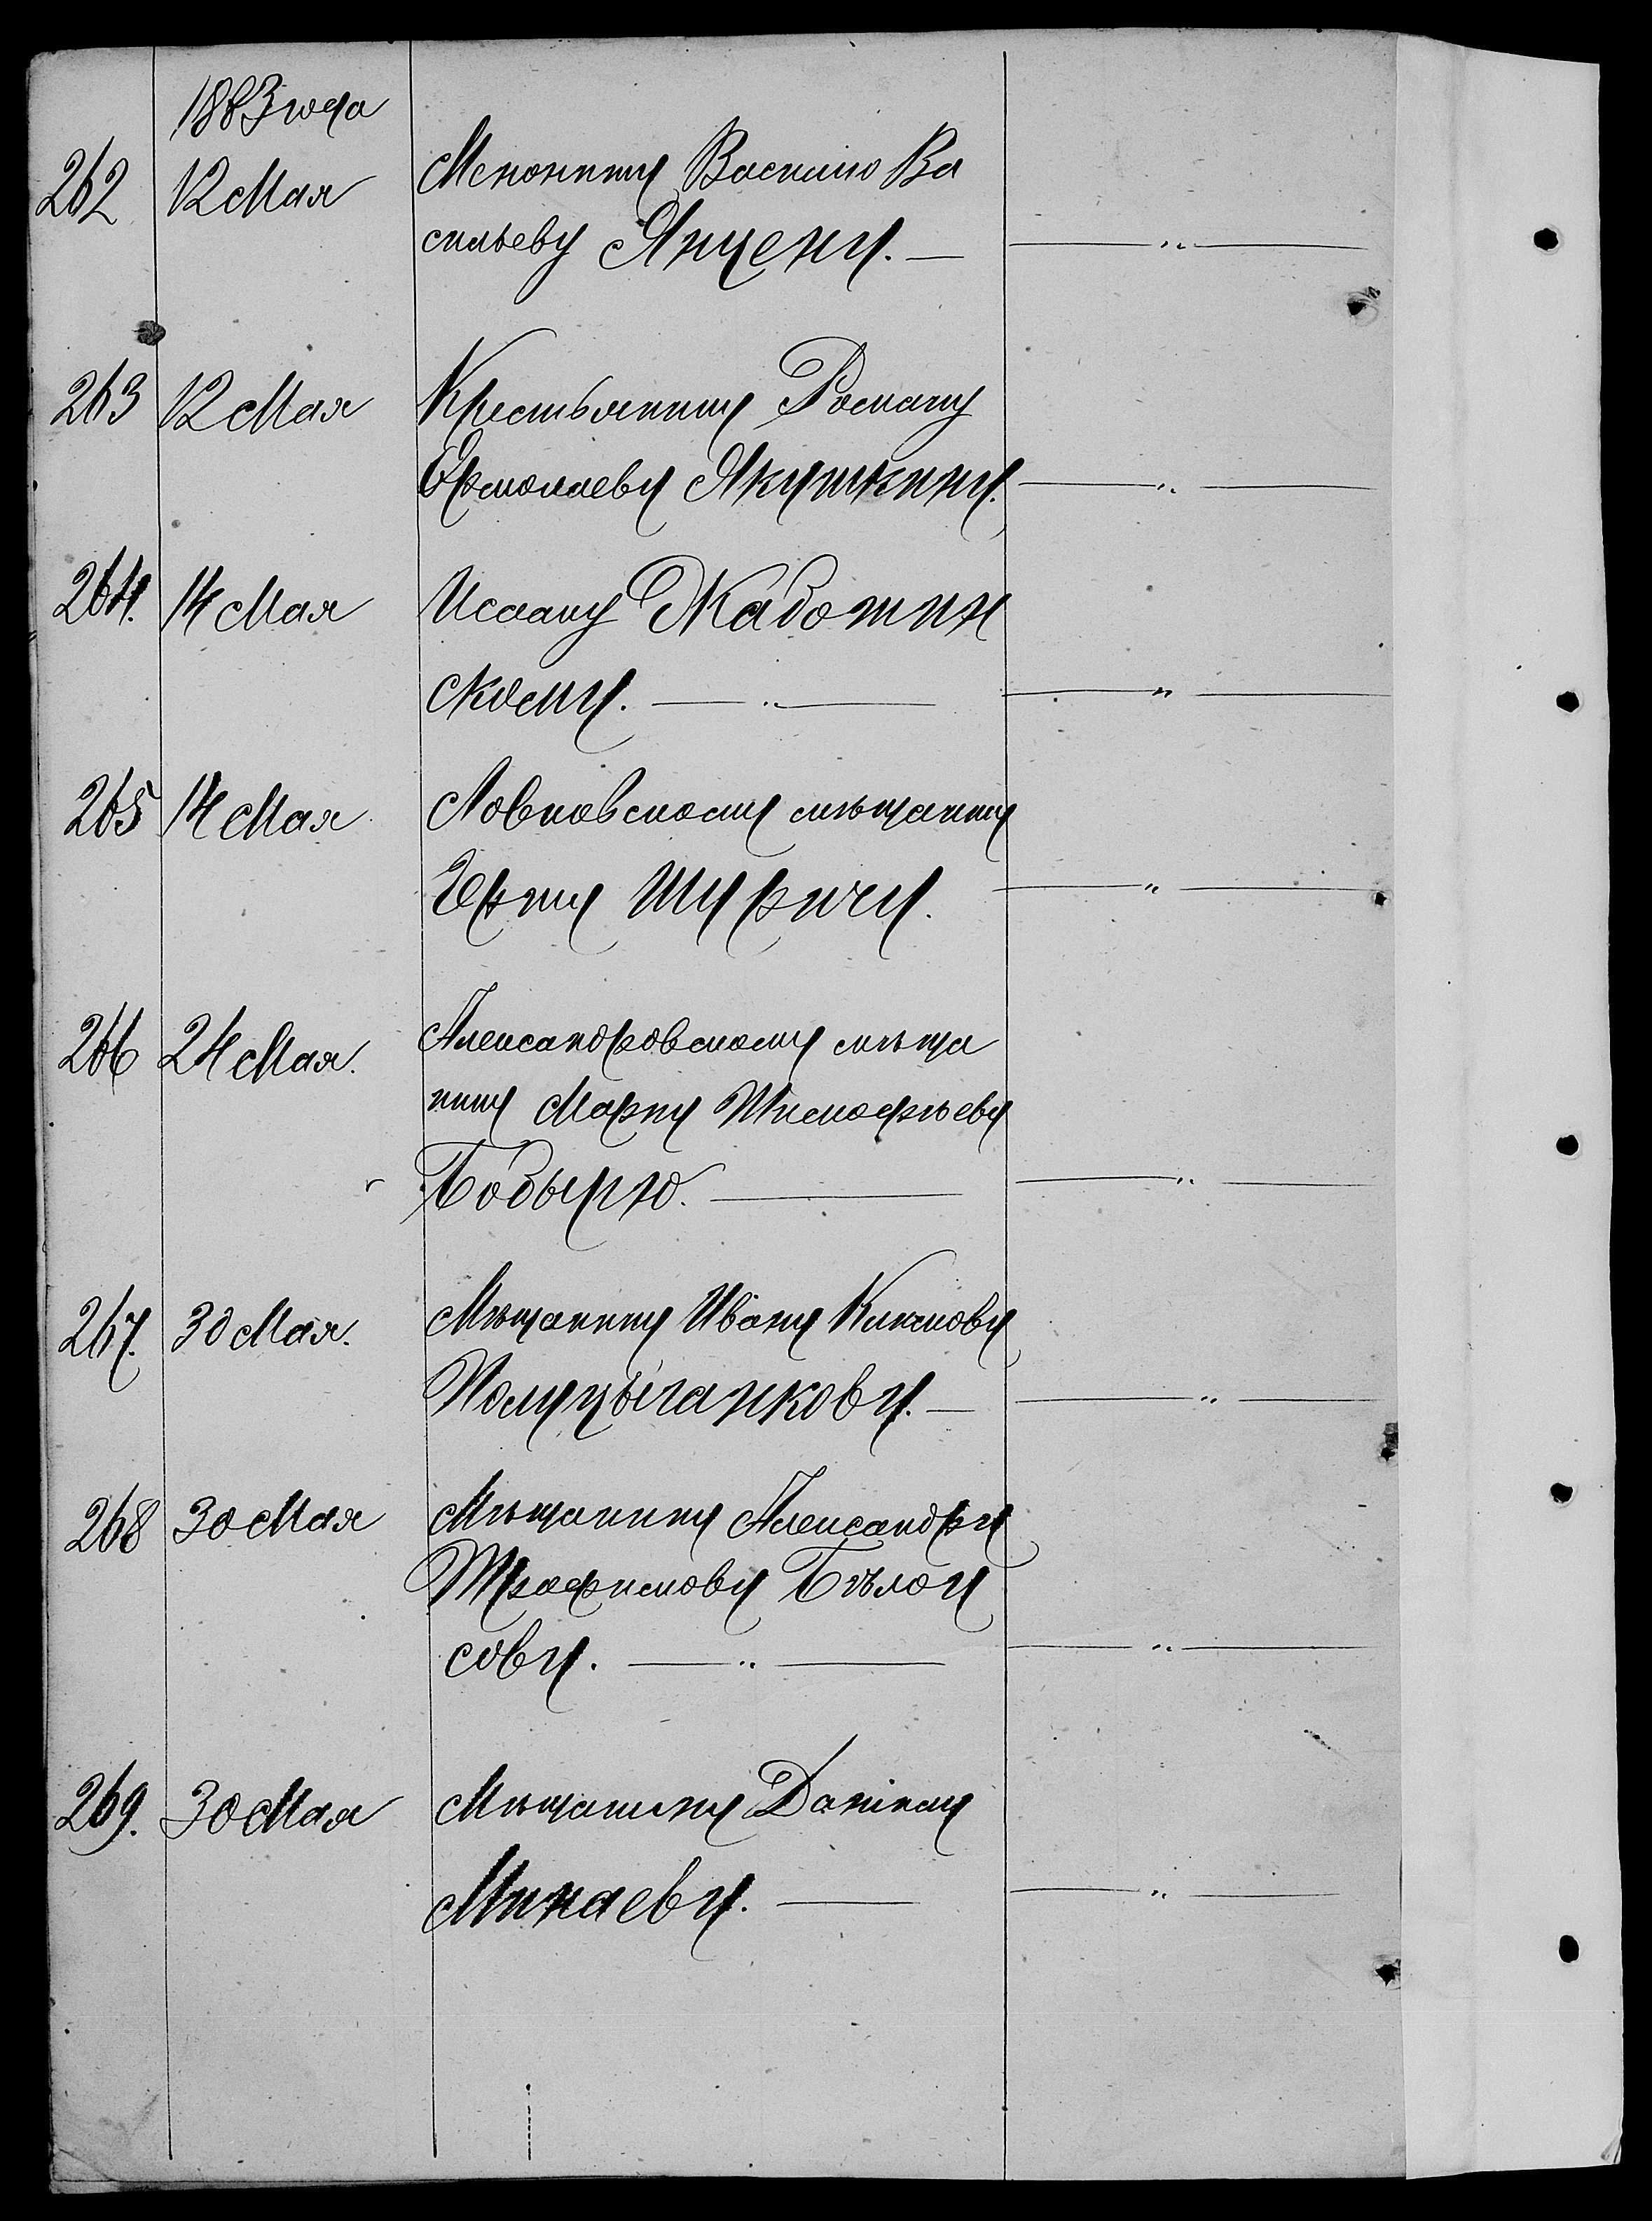 1883 года
262 12 Мая Менониту Василию Ва
сильеву Янцену. — — „ —
263 12 Мая Крестьянину Роману
Ермолаеву Якушкину. — „ —
264. 14 Мая Исааку Жаботин
скому. — „ — — „ —
265 14 Мая мѣщанину
Шуричу. — „ —
266 24 Мая. Александровскому мѣща
нину Марку Тимофѣеву
Бобырю. — — „ —
267. 30 Мая. Мѣщанину Ивану Климову
Полуцыганкову. — — „ —
268 30 Мая Мѣщанину Александру
Трофимову Бѣлоу
сову. — „ — — „ —
269. 30 Мая Мѣщанину Данiилу
Минаеву. — — „ —